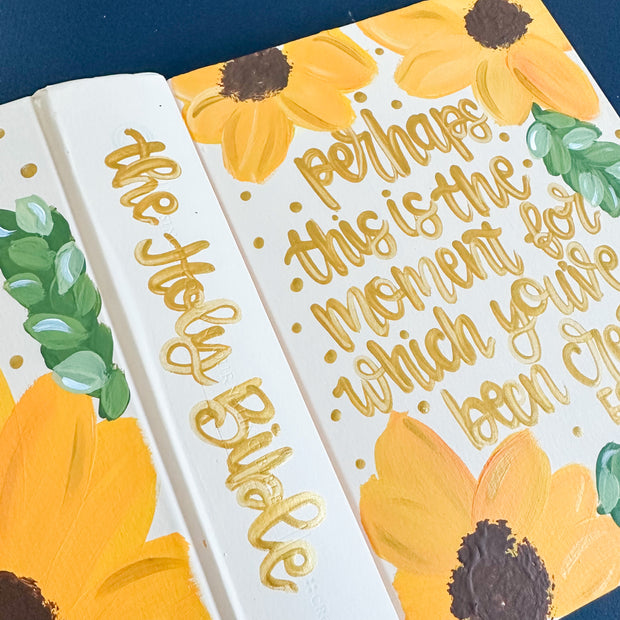 the Holy Bible
perhaps
this is the
moment for
which you've
been cre